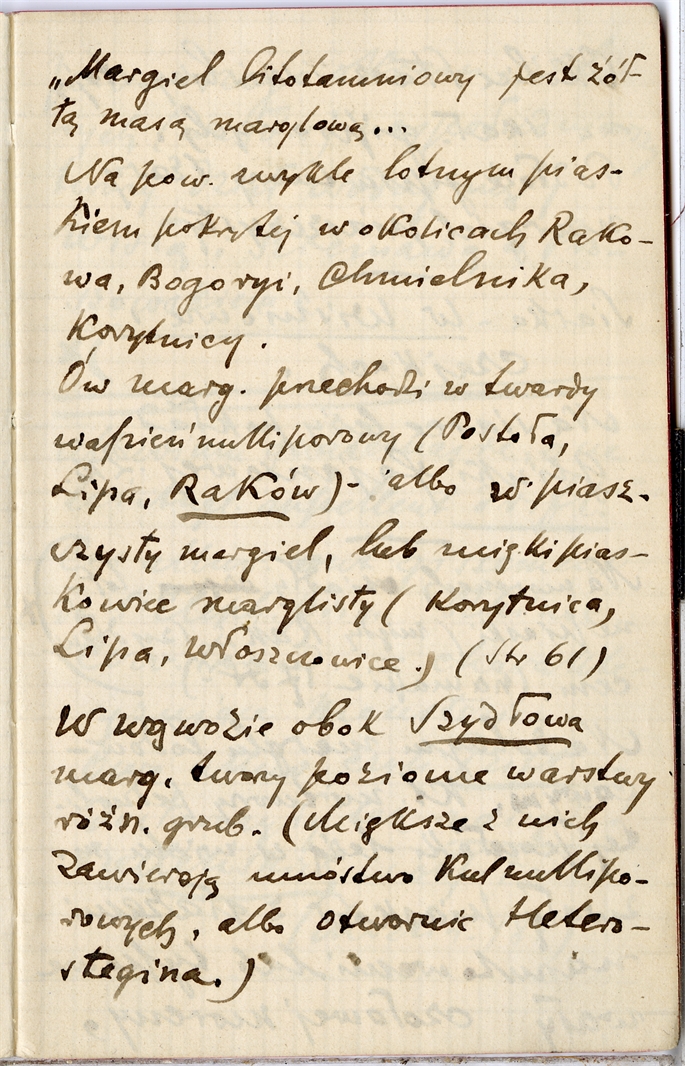 „Margiel litotamniowy jest żół-
tą masą marglową...
Na pow. zwykle lotnym pias-
kiem pokrytej w okolicach Rako-
wa, Bogoryi, Chmielnika,
Korytnicy.
Ów marg. przechodzi w twardy
wapień nulliporowy (Postoła,
Lipa, Raków) - albo w piasz-
czysty margiel, lub miękki pias-
kowiec marglisty (Korytnica,
Lipa, Włoszczowice.) (Str 61)
W wąwozie obok Szydłowa
marg. tworzy poziome warstwy
różn. grub. (Miększe z nich
zawierają mnóstwo kul nullipo-
rowych, albo otwornic Hetero-
stegina.)